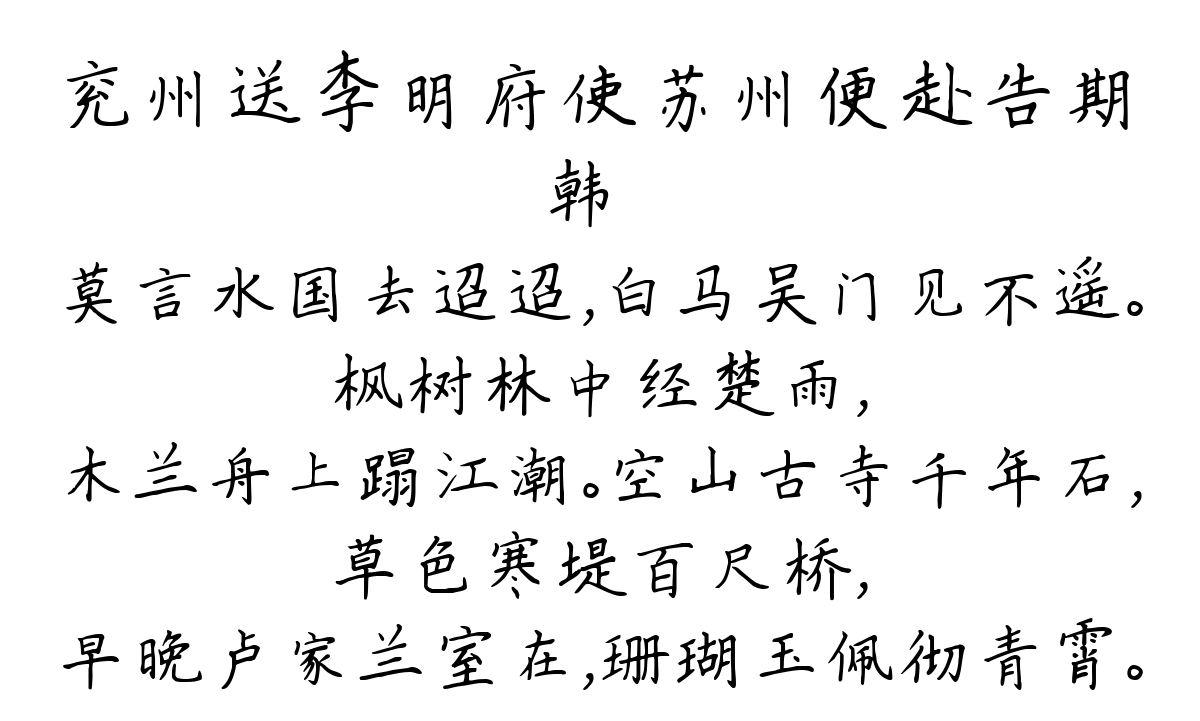 兖州送李明府使苏州便赴告期
韩
莫言水国去迢迢,白马吴门见不遥。
枫树林中经楚雨,
木兰舟上蹋江潮。空山古寺千年石,
草色寒堤百尺桥,
早晚卢家兰室在,珊瑚玉佩彻青霄。